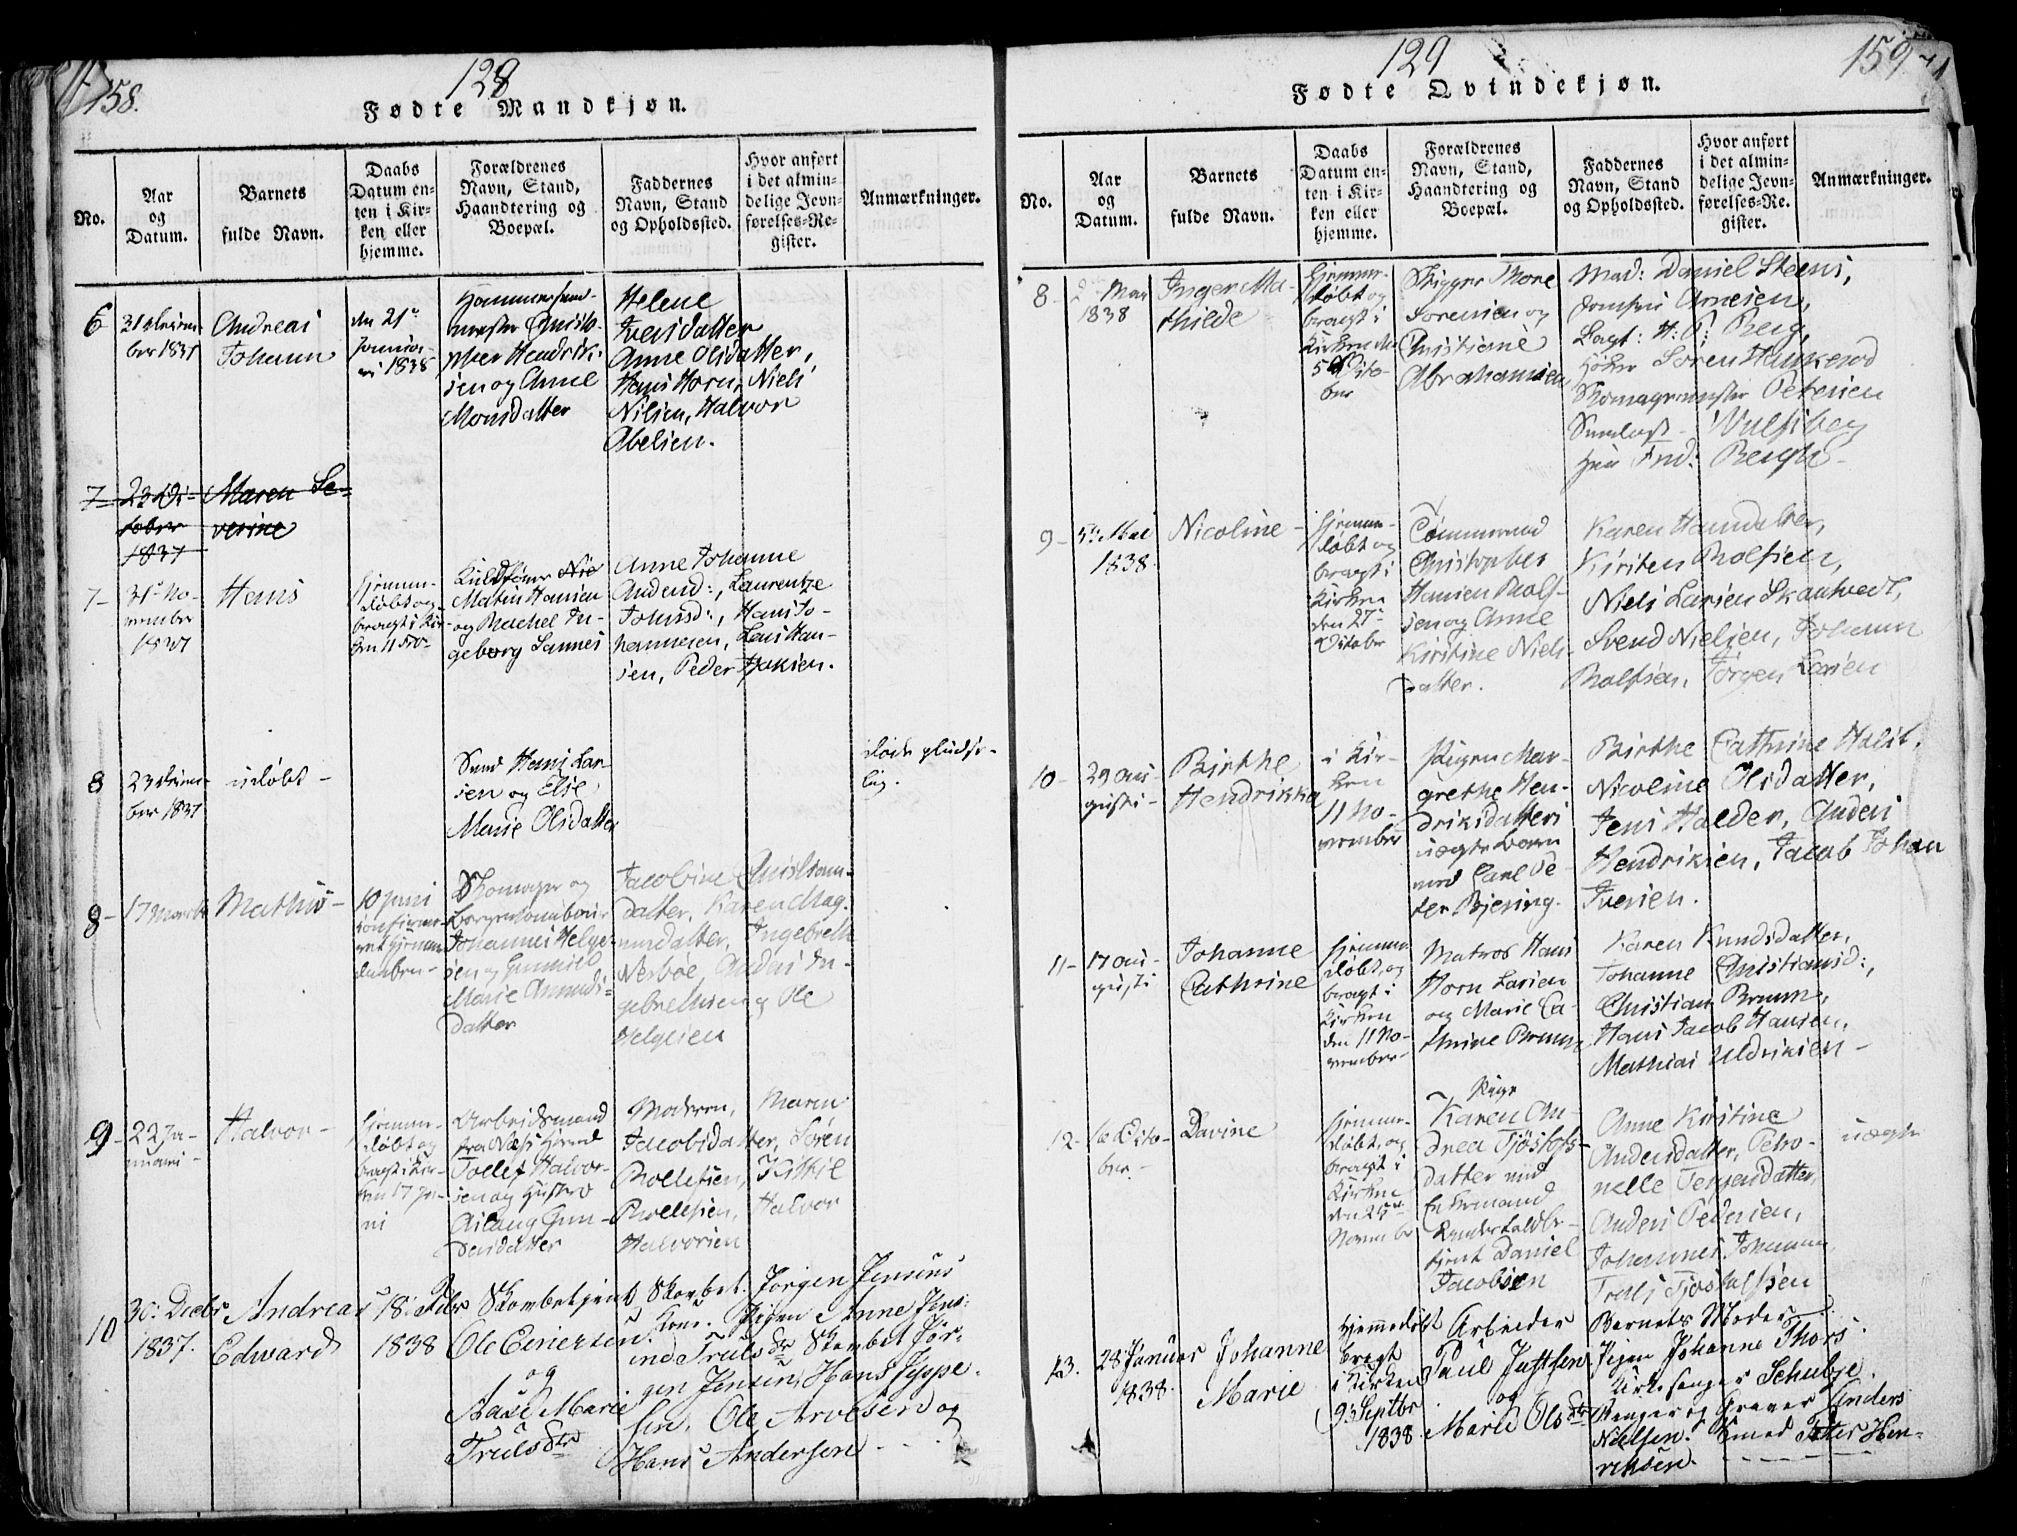 158.
128
Fødte Mandkjøn.
No.
Aar
og
Datum.
Barnets
fulde Navn.
Daabs
Datum en-
ten i Kir-
ken eller
hjemme.
Forældrenes
Navn, Stand,
Haandtering og
Boepæl.
Faddernes
Navn, Stand
og Opholdssted.
Hvor anført
i det almin-
delige Jevn-
førelses-Re-
gister.
Anmærkninger.
6
ber 1837
Andreas
Johann
den 21de
Januar
1838
Christo-
pher Hendrik-
sen og Anne
Monsdatter
Helene
Iversdatter
Anne Olsdatter,
Hans Horn, Niels
Nilsen, Halvor
Abelsen.
7
23 Oc-
tober
1837
Maren Se-
verine
7-
No-
vember
1837
Hans
Hjemme-
døbt og
bragt i Kir-
ken
Matin Hansen
og Rachel In-
geborg Sannes
Anne Johanne
Andersd:, Laurentze
Johnsd:, Hans Jo-
hannesen, Lars Han-
sen, Peder Isaksen.
8
ber 1837
udøbt -
Hans Lar-
sen og Else
Marie Olsdatter
døde pludse-
lig.
8-
17 Marts
Mathis -
10 Juni
Skomager og
Johannes Helge-
sen og Gunnild
Marie Amunds-
datter
Jacobine Christians-
datter, Karen Mag-
nusdatter, Ingebreth
Nesbøe, Anders In-
gebrethsen og Ole
Helgesen
9-
22 Ja-
nuari -
Halvor -
Hjemme-
døbt og
bragt i Kir-
ken 17 Ju-
ni
Arbeidsmand
fra Næs
Tollef Halvor-
sen og Hustro
Aslaug Gun-
dersdatter
Moderen, Maren
Jacobsdatter, Søren
Rollefsen, Kittil
Rollefsen, Halvor
Halvorsen
10
30: Decbr
1837.
Andreas
Edward
18: Febr
1838
Skovbetjent
Ole Einersen
og
Aase Marie
Trulsdtr
Skovbet. Jørgen Jensens
Kone. Pigen Anne Jens:
ine Trulsdr Skovbet Jør-
gen Jensen, Hans Jeppe-
sen, Ole Arvesen og
Hans Andersen
129
159
Fødte Qvindekjøn.
No.
Aar
og
Datum.
Barnets
fulde Navn.
Daabs
Datum en-
ten i Kir-
ken eller
hjemme.
Forældrenes
Navn, Stand,
Haandtering og
Boepæl.
Faddernes
Navn, Stand
og Opholdssted.
Hvor anført
i det almin-
delige Jevn-
førelses-Re-
gister.
Anmærkninger.
8-
Mai
1838
Inger Ma-
thilde
Hjemme-
døbt og
bragt i
Kirken den
5 Octo-
ber
Skipper Thore
Sørensen og
Christiane
Abrahamsen
Mad: Daniel Steens,
Jomfrue Arnesen,
H: P: Berg,
Høker Søren Hankerød
Skomagermester Petersen
Wulfsberg
Herr Frid: Bergh
9-
5te Mai
1838.
Nicoline -
Hjemme-
døbt og
bragt i
Kirken
den 21de
October
Tømmermand
Christopher
Hansen Rolf-
sen og Anne
Kirstine Niels-
datter.
Karen Hansdatter,
Kirsten Rolfsen,
Niels Larsen Skautvedt,
Svend Nielsen, Johann
Rolfsen, Jørgen Larsen
10-
29 Au-
gusti -
Birthe
Hendrikka
i Kir-
ken
11 No-
vember
Pigen Mar-
grethe Hen-
driksdatters
uægte Barn
med Carl Pe-
ter Bjering.
Birthe Cathrine Holst,
Nicoline Olsdatter,
Jens Halder, Anders
Hendriksen, Jacob Johan
Iversen.
11-
17 Au-
gusti
Johanne
Cathrine
Hjemme-
døbt, og
bragt i
Kirken
den 11 No-
vember -
Matros Hans
Horn Larsen
og Marie Ca-
thrine Bruun
Karen Knudsdatter,
Johanne Christiansd:,
Christian Bruun,
Hans Jacob Hansen,
Mathias Uldriksen -
12-
16 Octo-
ber -
Davine
Hjemme-
døbt, og
bragt i
Kirken
den 25de
Novembr
Pige
Karen An-
drea Tjøstofs-
datter med
Enkemand
Daniel
Jacobsen
Anne Kirstine
Andersdatter, Petro-
nelle Jespersdatter,
Anders Pedersen,
Johannes Johann
Truls Tjøstolfsen
uægte
13.
28 Januar
1838.
Johanne
Marie
Hjemmedøbt
bragt
i Kirken
9: Septbr
1838
Arbeider
Paul Justsen
og
Marie Olsdtr
Barnets Moder
Pigen Johanne Thors.
Kirkesanger Schultze.
Ringer og Graver Anders
Nielsen. Smed Peter Hen-
riksen.